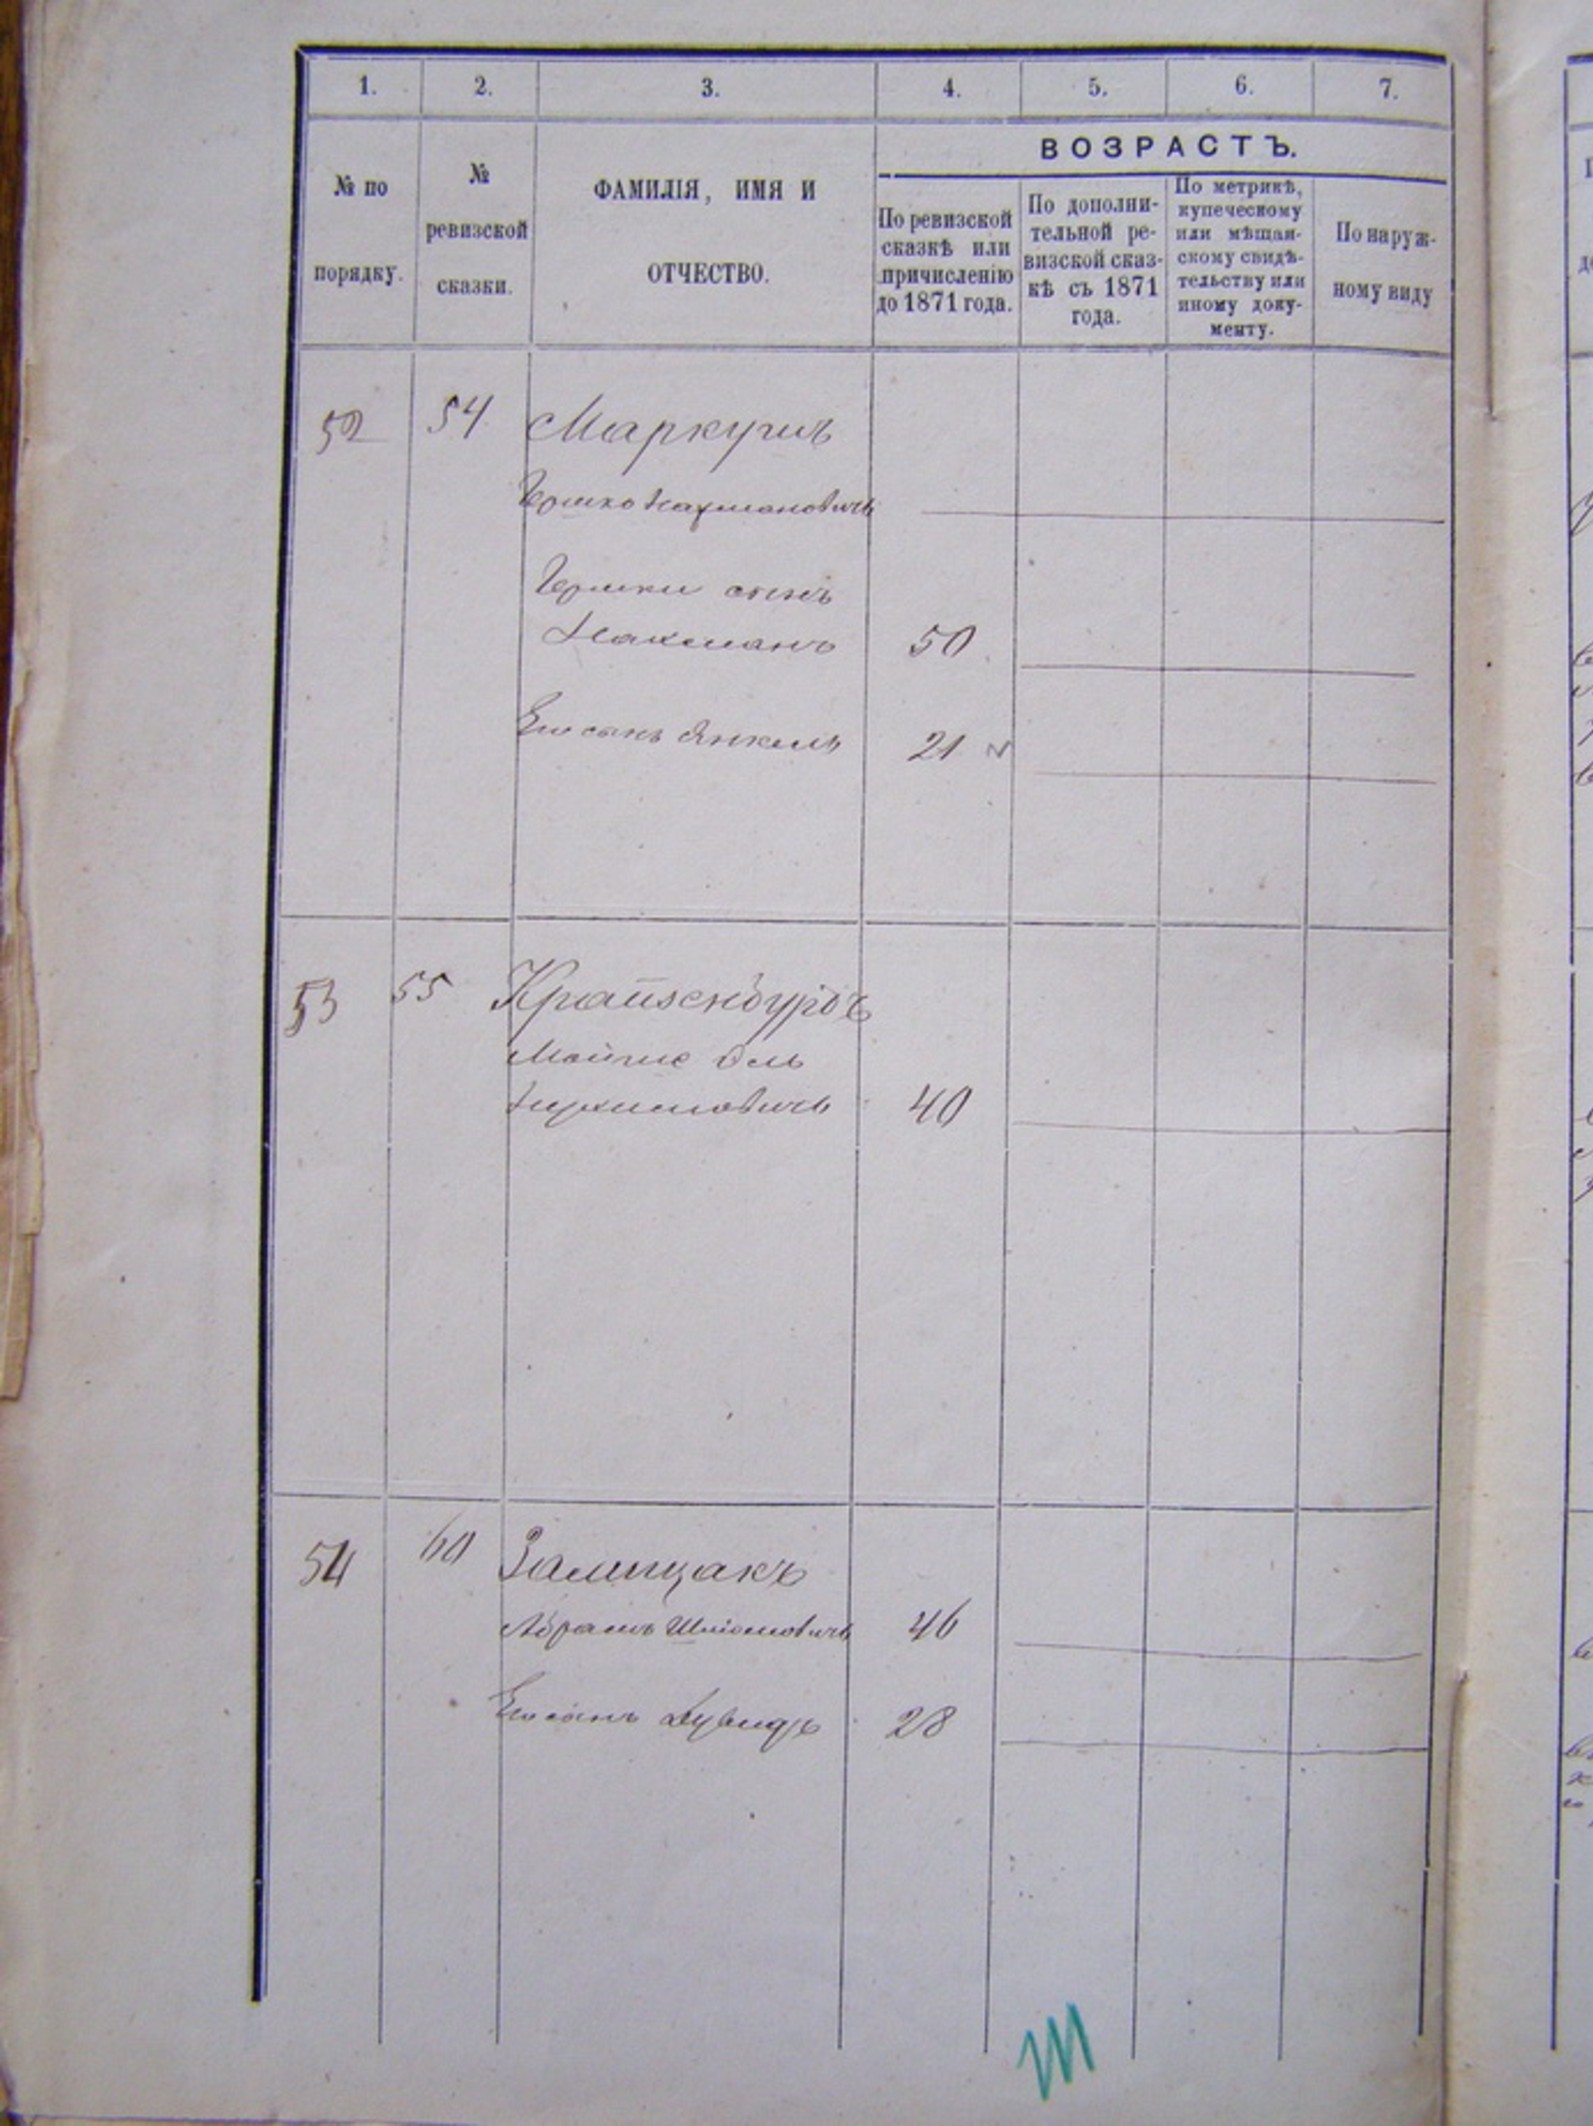 1. 2. 3. 4. 5. 6. 7.
№ по порядку.
№ ревизской сказки.
ФАМИЛІЯ, ИМЯ И
ОТЧЕСТВО.
ВОЗРАСТЪ.
По ревизской
сказкѣ или
причисленію
до 1871 года.
По дополни-
тельной ре-
визской сказ-
кѣ съ 1871
года.
По метрикѣ,
купеческому
или мѣщан-
скому свидѣ-
тельству или
иному доку-
менту.
По наруж-
ному виду
52 54 Маркусъ
Гершко Нахмановичъ
Гершки сынъ
Нахманъ 50
Его сынъ Янкель 21
53 55 Крайзенбургъ
Мойше
40
54 60 Залищакъ
Абрамъ Шліомовичъ 46
Его сынъ Дувидъ 28